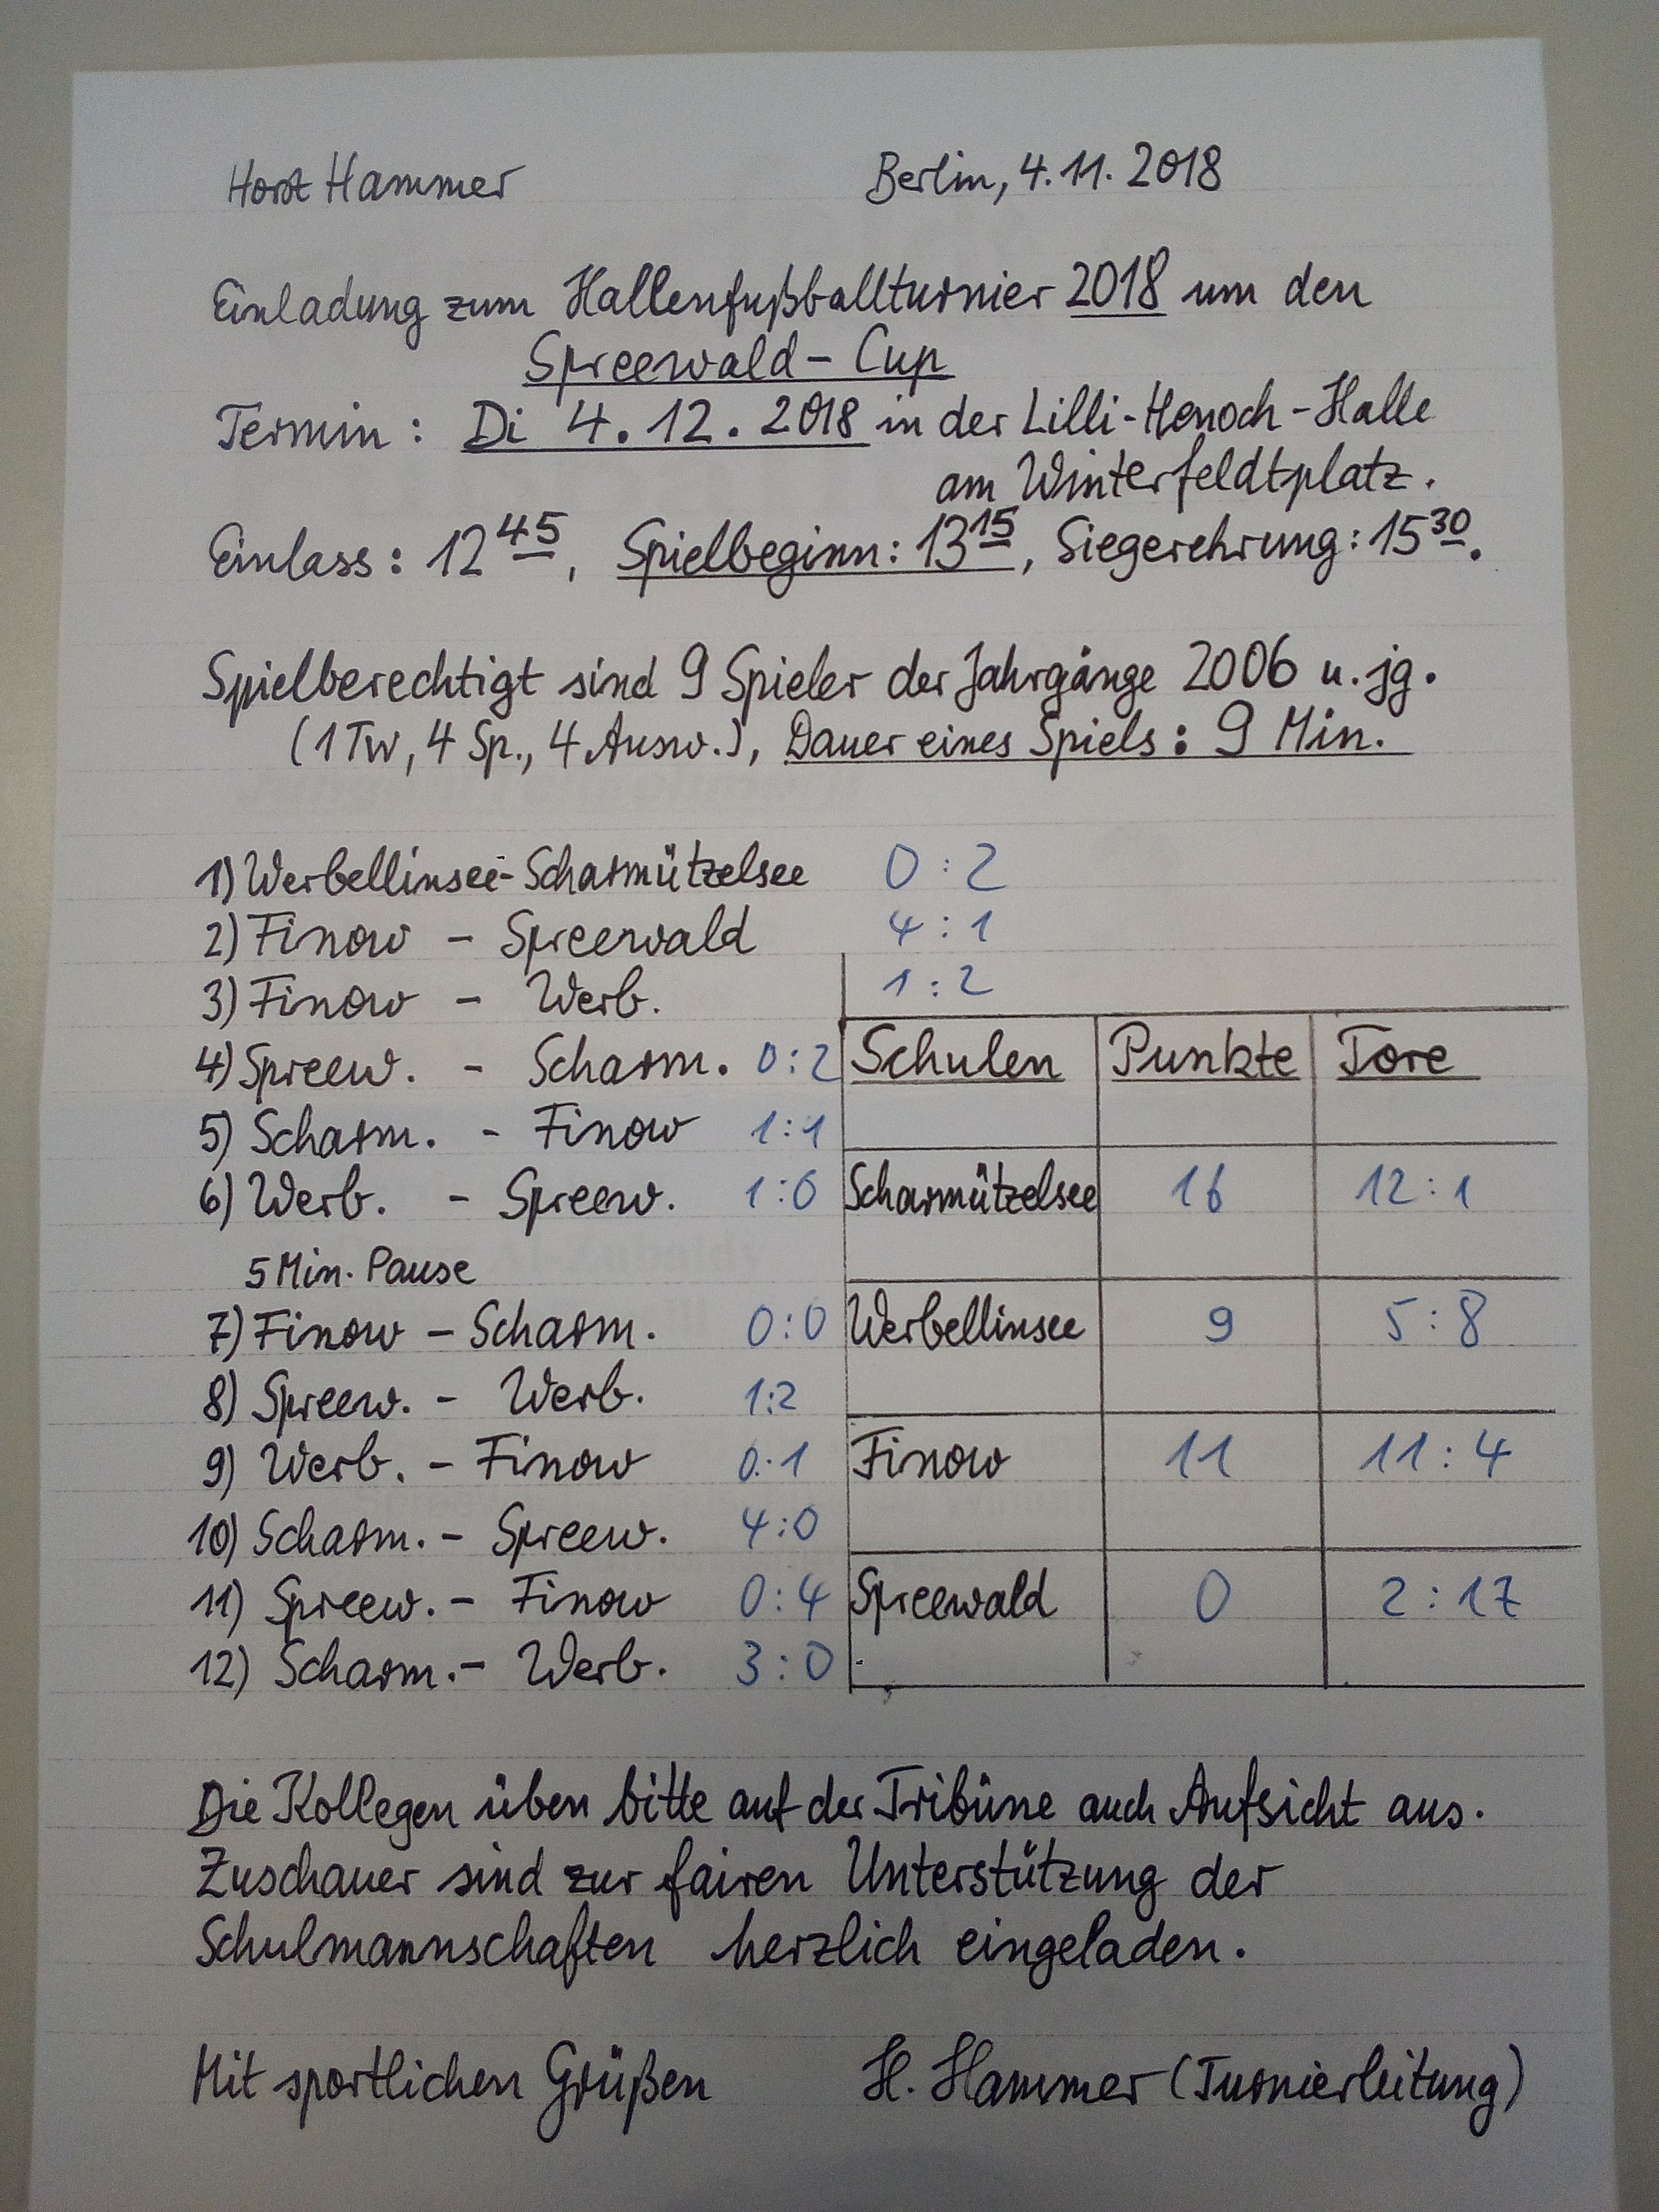 Horst Hammer Berlin, 4.11.2018
Einladung zum Hallenfußballturnier 2018 um den
Spreewald-Cup
Termin: Di 4.12.2018 in der Lilli-Henoch-Halle
am Winterfeldtplatz.
Einlass: 12 45, Spielbeginn: 13 15, Siegerehrung: 15 30.
Spielberechtigt sind 9 Spieler der Jahrgänge 2006 u. jg.
(1 Tw, 4 Sp., 4 Ausw.), Dauer eines Spiels: 9 Min.
1) Werbellinsee-Scharmützelsee 0:2
2) Finow - Spreewald 4:1
3) Finow - Werb. 1:2
4) Spreew. - Scharm. 0:2
5) Scharm. - Finow 1:1
6) Werb. - Spreew. 1:0
5 Min. Pause
7) Finow - Scharm. 0:0
8) Spreew. - Werb. 1:2
9) Werb. - Finow 0:1
10) Scharm. - Spreew. 4:0
11) Spreew. - Finow 0:4
12) Scharm. - Werb. 3:0
Schulen Punkte Tore
Scharmützelsee 16 12:1
Werbellinsee 9 5:8
Finow 11 11:4
Spreewald 0 2:17
Die Kollegen üben bitte auf der Tribüne auch Aufsicht aus.
Zuschauer sind zur fairen Unterstützung der
Schulmannschaften herzlich eingeladen.
Mit sportlichen Grüßen H. Hammer (Turnierleitung)